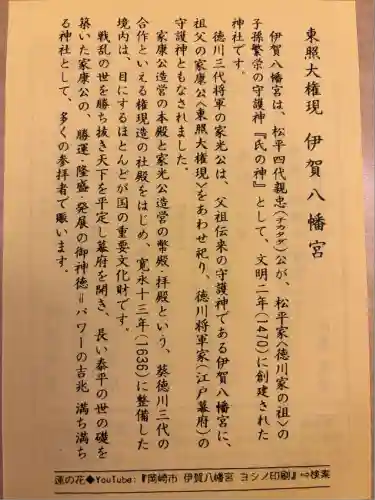 東照大権現 伊賀八幡宮
伊賀八幡宮は、松平四代親忠(チカタダ)公が、松平家<徳川家の祖>の
子孫繁栄の守護神『氏の神』として、文明二年(1470)に創建された
神社です。
徳川三代将軍の家光公は、父祖伝来の守護神である伊賀八幡宮に、
祖父の家康公<東照大権現>をあわせ祀り、徳川将軍家(江戸幕府)の
守護神ともなされました。
家康公造営の本殿と家光公造営の幣殿・拝殿という、葵徳川三代の
合作といえる権現造の社殿をはじめ、寛永十三年(1636)に整備した
境内は、目にするほとんどが国の重要文化財です。
戦乱の世を勝ち抜き天下を平定し幕府を開き、長い泰平の世の礎を
築いた家康公の、勝運・隆盛・発展の御神徳=パワーの古兆 満ち満ち
る神社として、多くの参拝者で賑います。
蓮の花◆YouTube:『岡崎市 伊賀八幡宮 ヨシノ印刷』⇔検索